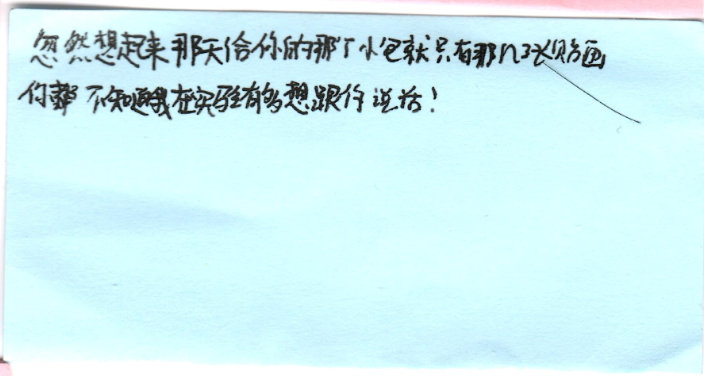 忽然想起来那天给你的那个小包就只有那几张贴画
你都不知道我在实验室有多想跟你说话!